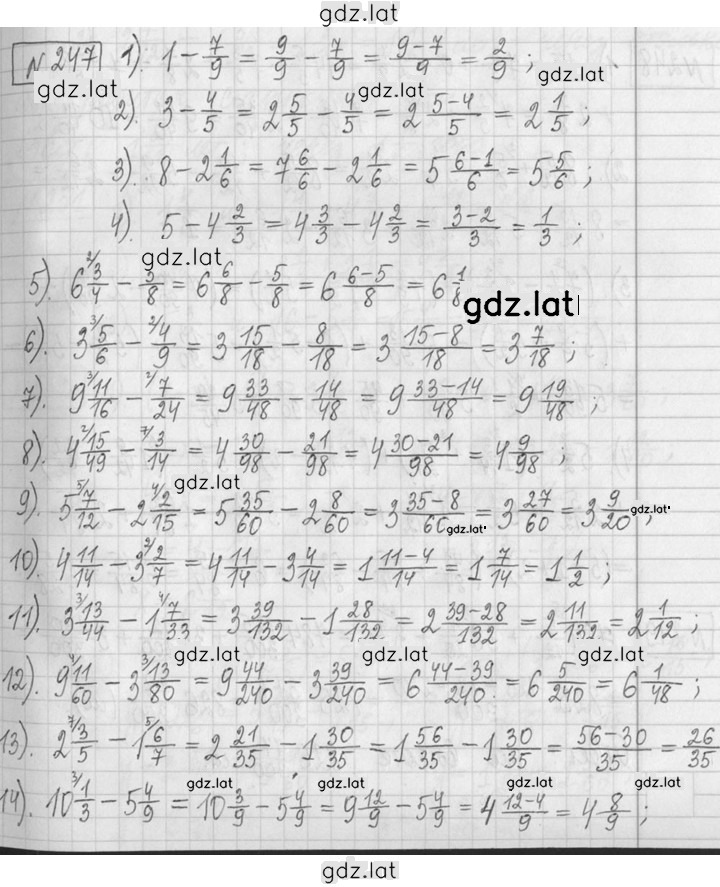 gdz.lat
№247 1). 1 - 7/9 = 9/9 - 7/9 = (9-7)/9 = 2/9 ;
gdz.lat gdz.lat gdz.lat
2). 3 - 4/5 = 2 5/5 - 4/5 = 2 (5-4)/5 = 2 1/5 ;
3). 8 - 2 1/6 = 7 6/6 - 2 1/6 = 5 (6-1)/6 = 5 5/6 ;
4). 5 - 4 2/3 = 4 3/3 - 4 2/3 = (3-2)/3 = 1/3 ;
gdz.lat
5). 6 ²⁄3/4 - 5/8 = 6 6/8 - 5/8 = 6 (6-5)/8 = 6 1/8
gdz.lat
6). 3 ³⁄5/6 - ²⁄4/9 = 3 15/18 - 8/18 = 3 (15-8)/18 = 3 7/18 ;
7). 9 ³⁄11/16 - ²⁄7/24 = 9 33/48 - 14/48 = 9 (33-14)/48 = 9 19/48 ;
8). 4 ²⁄15/49 - ⁷⁄3/14 = 4 30/98 - 21/98 = 4 (30-21)/98 = 4 9/98 ;
gdz.lat
9). 5 ⁵⁄7/12 - 2 ⁴⁄2/15 = 5 35/60 - 2 8/60 = 3 (35-8)/60 = 3 27/60 = 3 9/20 ;
gdz.lat gdz.lat
10). 4 11/14 - 3 ²⁄2/7 = 4 11/14 - 3 4/14 = 1 (11-4)/14 = 1 7/14 = 1 1/2 ;
11). 3 ³⁄13/44 - 1 ⁴⁄7/33 = 3 39/132 - 1 28/132 = 2 (39-28)/132 = 2 11/132 = 2 1/12 ;
gdz.lat gdz.lat gdz.lat
12). 9 ⁴⁄11/60 - 3 ³⁄13/80 = 9 44/240 - 3 39/240 = 6 (44-39)/240 = 6 5/240 = 6 1/48 ;
13). 2 ⁷⁄3/5 - 1 ⁵⁄6/7 = 2 21/35 - 1 30/35 = 1 56/35 - 1 30/35 = (56-30)/35 = 26/35
gdz.lat gdz.lat gdz.lat gdz.lat
14). 10 ³⁄1/3 - 5 4/9 = 10 3/9 - 5 4/9 = 9 12/9 - 5 4/9 = 4 (12-4)/9 = 4 8/9 ;
gdz.lat gdz.lat gdz.lat
gdz.lat